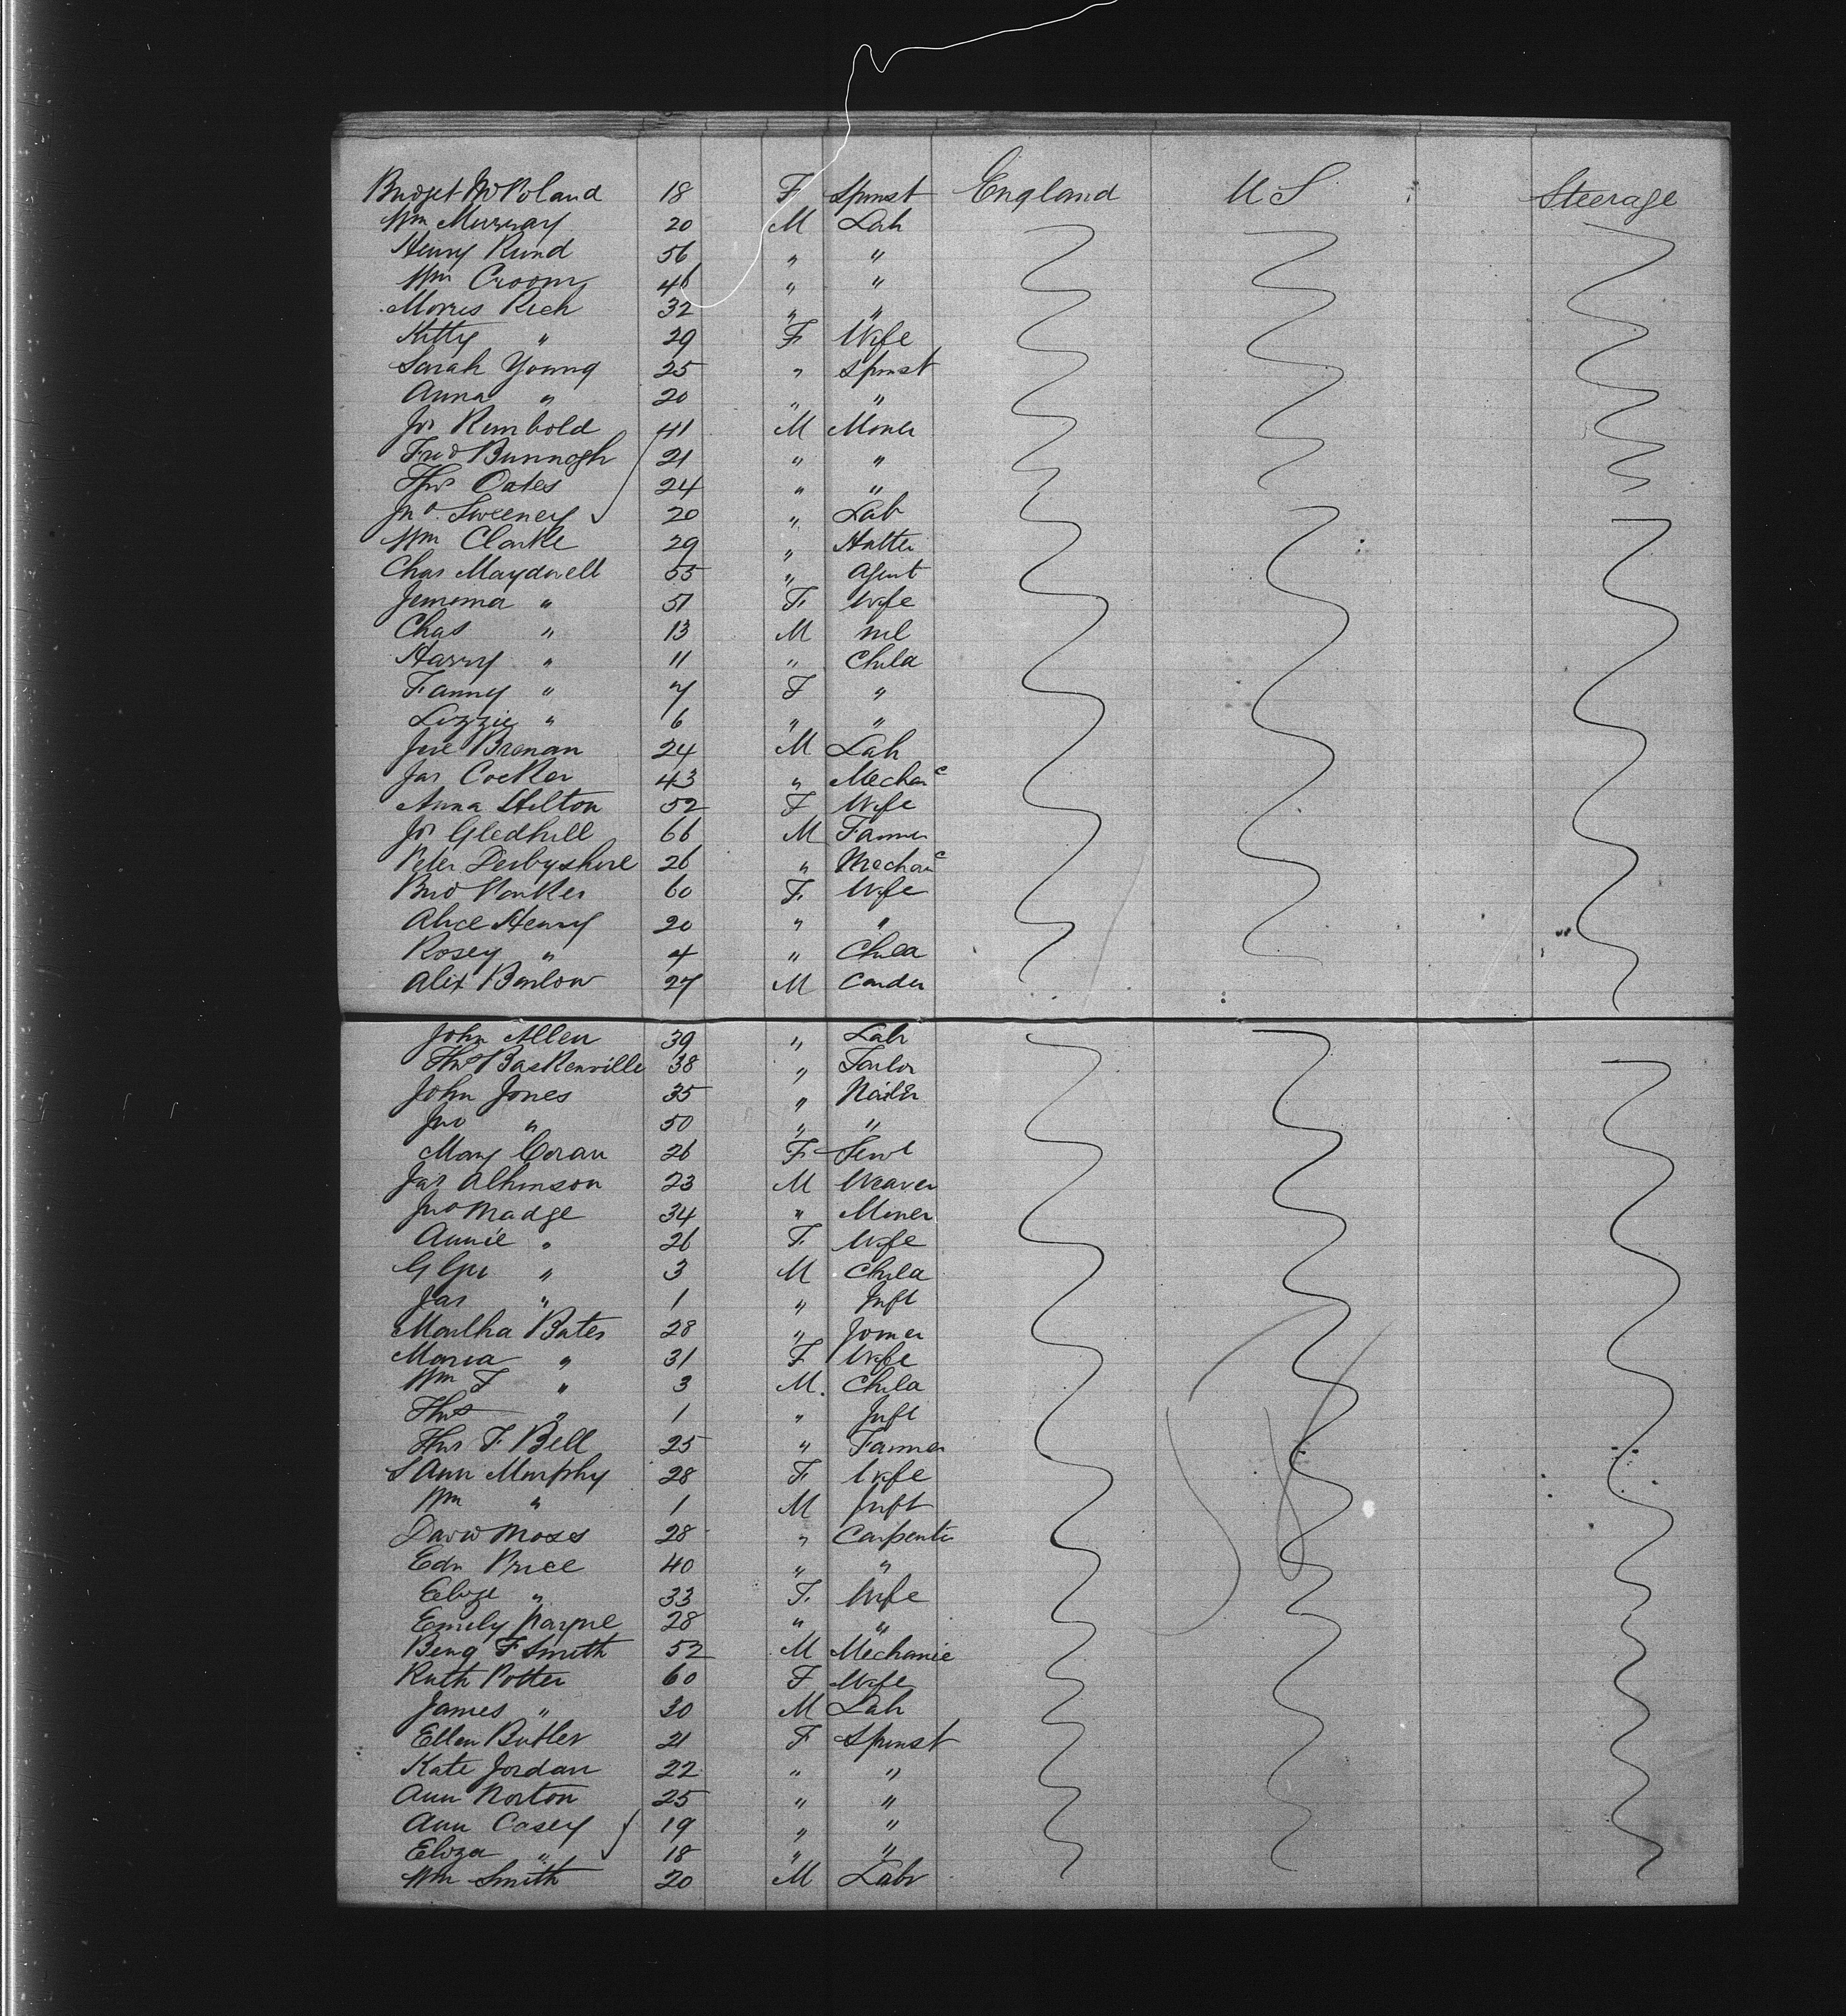 Bridget McPoland 18 F Spinst England U S Steerage
Wm Murray 20 M Lab
Henry Rund 56 " "
Wm Croom 46 " "
Morris Rich 32 " "
Kitty " 29 F Wife
Sarah Young 25 " Spinst
Anna " 20 " "
Jos Rumbold 41 M Miner
Fred 21 " "
Thos Oates 24 " "
Jno Sweeney 20 " Lab
Wm Clarke 29 " Hatter
Chas Maydwell 55 " Agent
Jemima " 51 F Wife
Chas " 13 M nil
Harry " 11 " Child
Fanny " 7 F "
Lizzie " 6 " "
Jere Brenan 24 M Lab
Jas Cocker 43 " Mechanc
Anna Hilton 52 F Wife
Jos Gledhill 66 M Farmer
Peter Derbyshire 26 " Mechanc
60 F Wife
Alice Henry 20 " "
Rosey " 4 " Child
Alex Barlow 27 M Carder
John Allen 39 " Lab
Thos Baskerville 38 " Tailor
John Jones 35 " Nailer
Jno " 50 " "
Mary Coran 26 F Servt
Jas Atkinson 23 M Weaver
Jno Madge 34 " Miner
Annie " 26 F Wife
" 3 M Child
Jas " 1 " Inft
Martha Bates 28 " Joiner
Maria " 31 F Wife
Wm F " 3 M Child
Thos " 1 " Inft
Thos F. Bell 25 " Farmer
S Ann Murphy 28 F Wife
Wm " 1 M Inft
David Moss 28 " Carpenter
Edn Price 40 " "
Eliza " 33 F Wife
Emily Payne 28 " "
Benj F Smith 52 M Mechanic
Ruth Potter 60 F Wife
James " 30 M Lab
Ellen Butler 21 F Spinst
Kate Jordan 22 " "
Ann Norton 25 " "
Ann Casey 19 " "
Eliza " 18 " "
Wm Smith 20 M Labr